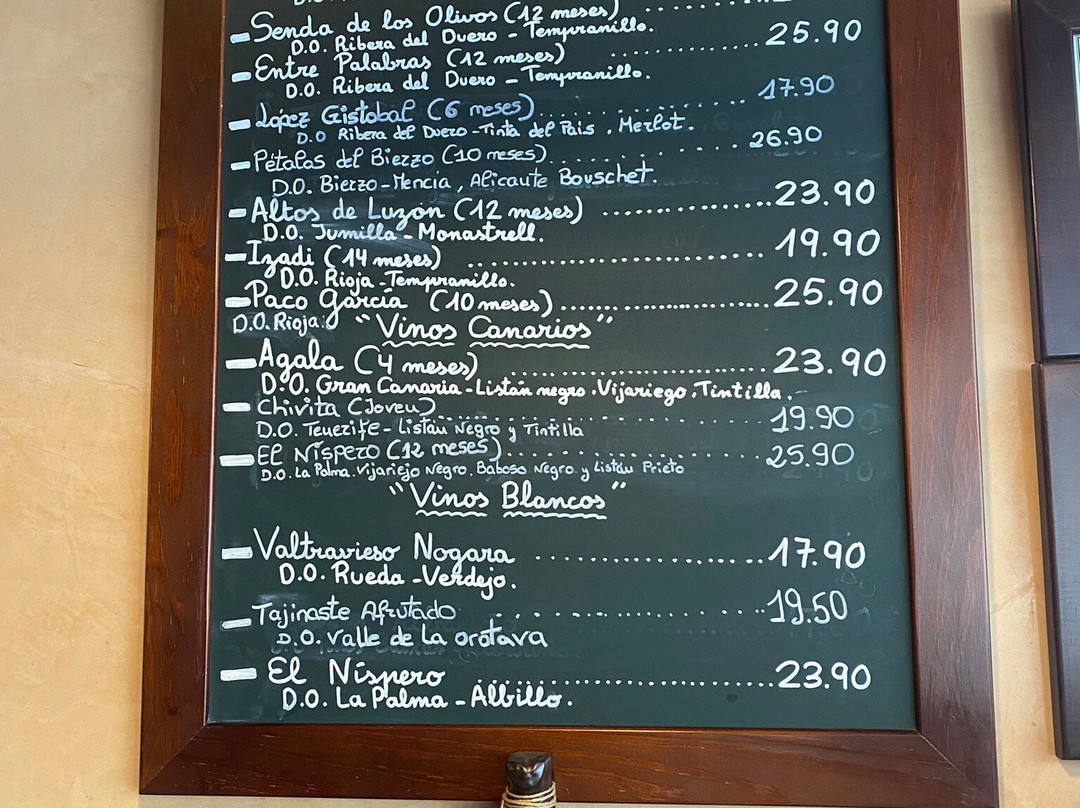 - Senda de los Olivos (12 meses) ..........
D.O. Ribera del Duero - Tempranillo.
- Entre Palabras (12 meses) .............. 25.90
D.O. Ribera del Duero - Tempranillo.
- López Cistobal (6 meses) .............. 17.90
D.O Ribera del Duero - Tinta del Pais , Merlot.
- Pétalos del Bierzo (10 meses) .............. 26.90
D.O. Bierzo - Mencía , Alicante Bouschet.
- Altos de Luzón (12 meses) .............. 23.90
D.O. Jumilla - Monastrell.
- Izadi (14 meses) .............. 19.90
D.O. Rioja - Tempranillo.
- Paco García (10 meses) .............. 25.90
D.O. Rioja:
"Vinos Canarios"
- Agala (4 meses) .............. 23.90
D.O. Gran Canaria - Listán negro , Vijariego , Tintilla .
- Chivita (Joven) .............. 19.90
D.O. Tenerife - Listán Negro y Tintilla
- El Níspero (12 meses) .............. 25.90
D.O. La Palma. Vijariejo Negro, Baboso Negro y Listán Prieto
"Vinos Blancos"
- Valtravieso Nogara .............. 17.90
D.O. Rueda - Verdejo.
- Tajinaste Afrutado .............. 19.50
D.O. Valle de La orotava
- El Níspero .............. 23.90
D.O. La Palma - Albillo.